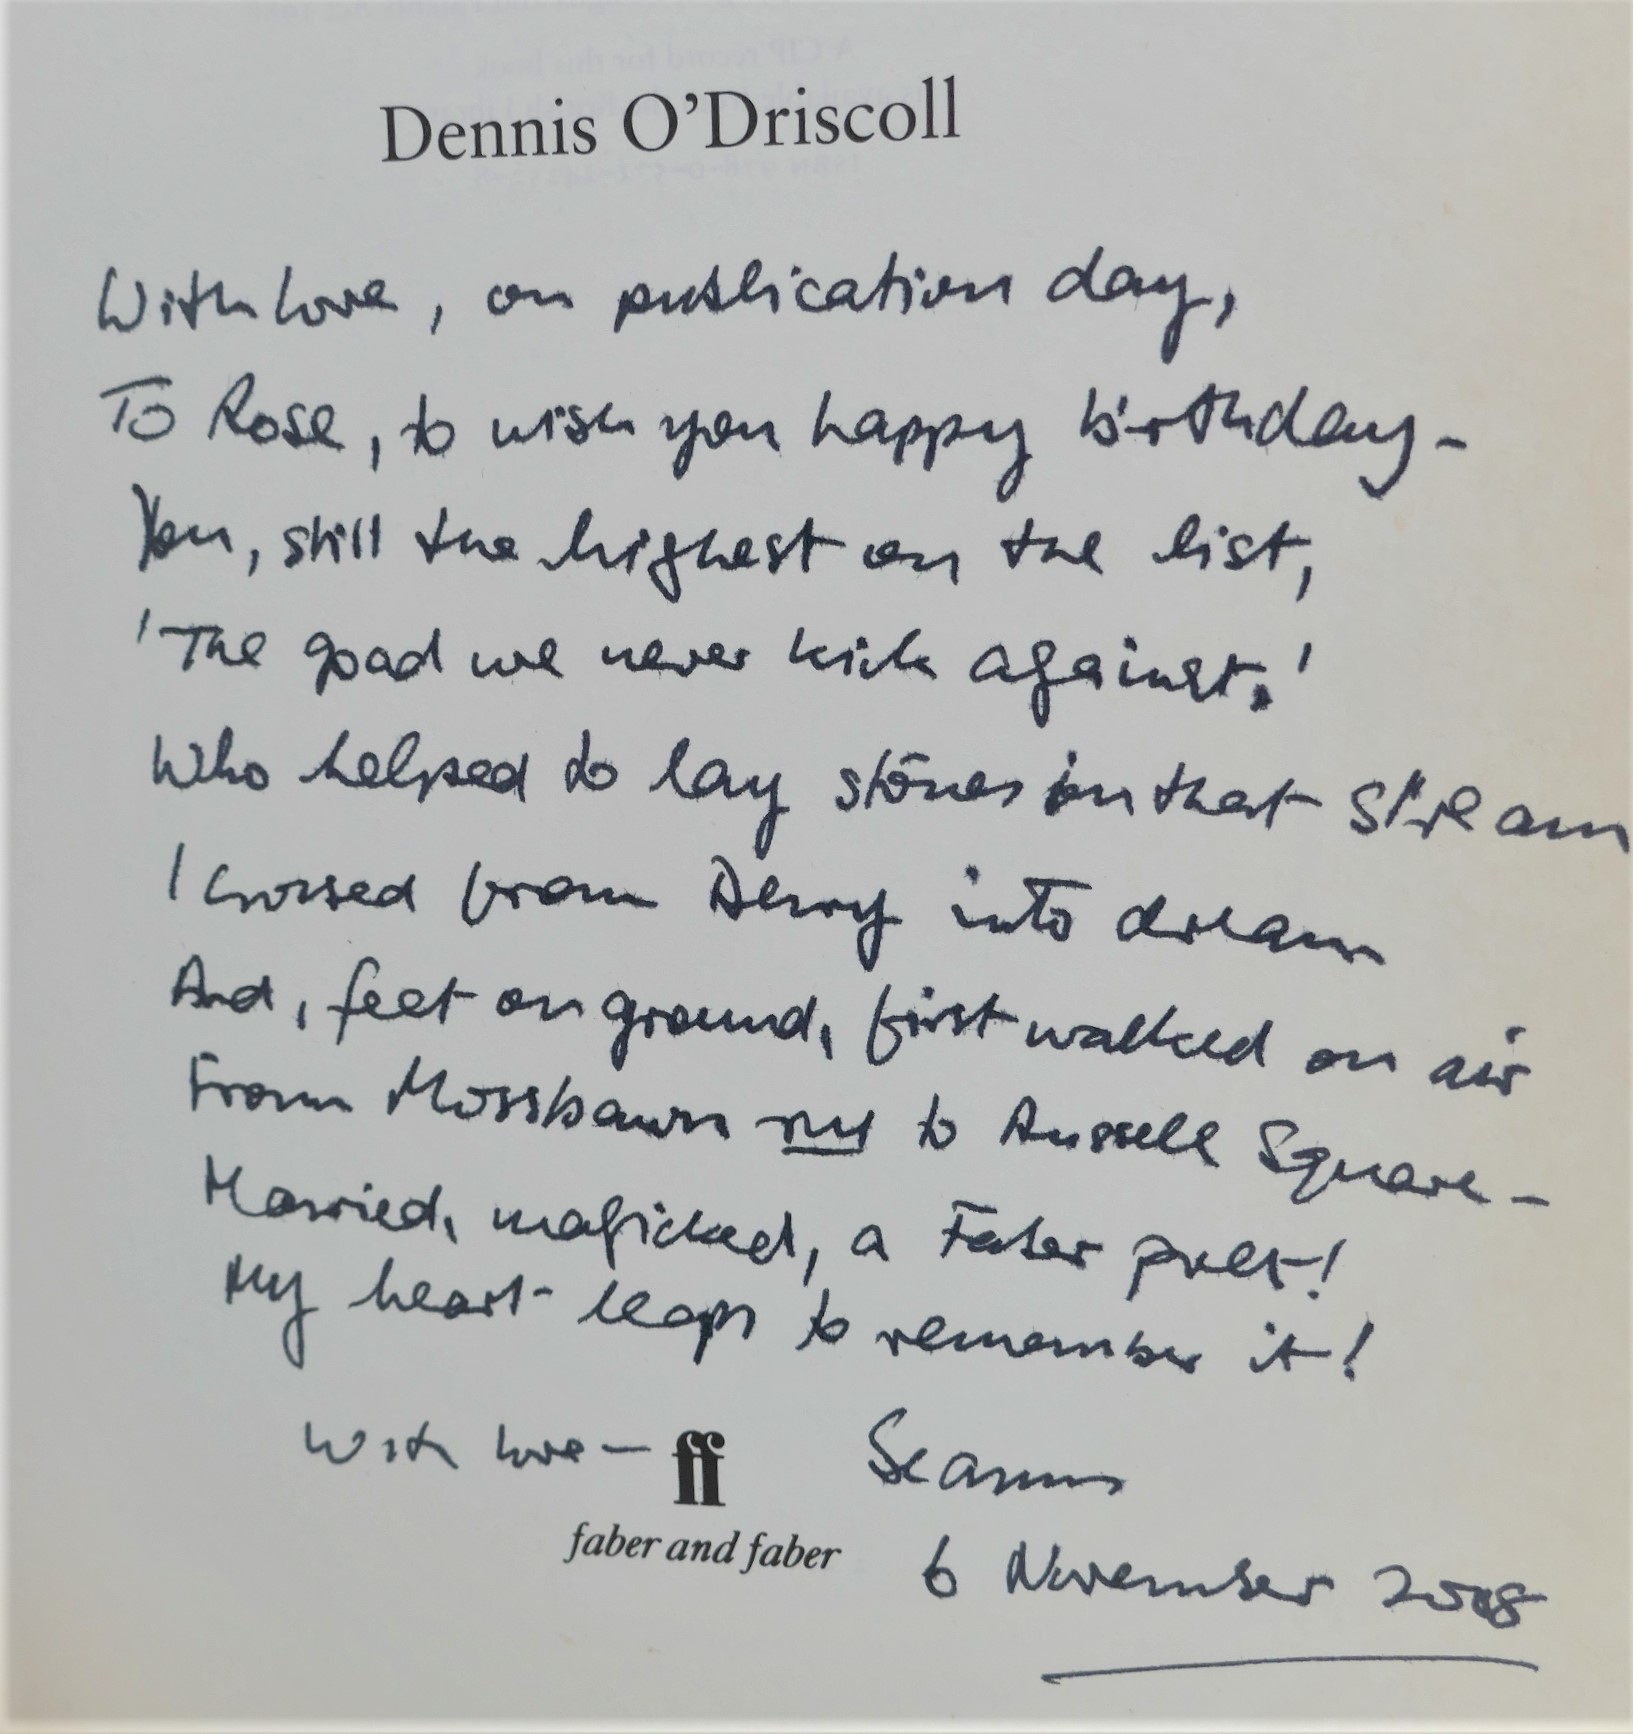 Dennis O'Driscoll
With love, on publication day,
To Rose, to wish you happy birthday –
You, still the highest on the list,
'The goad we never kick against,'
Who helped to lay stones in that stream
I crossed from Derry into dream
And, feet on ground, first walked on air
From Mossbawn to Russell Square –
Married, maficked, a Faber poet!
My heart leaps to remember it!
With love – ff Seamus
faber and faber
6 November 2008